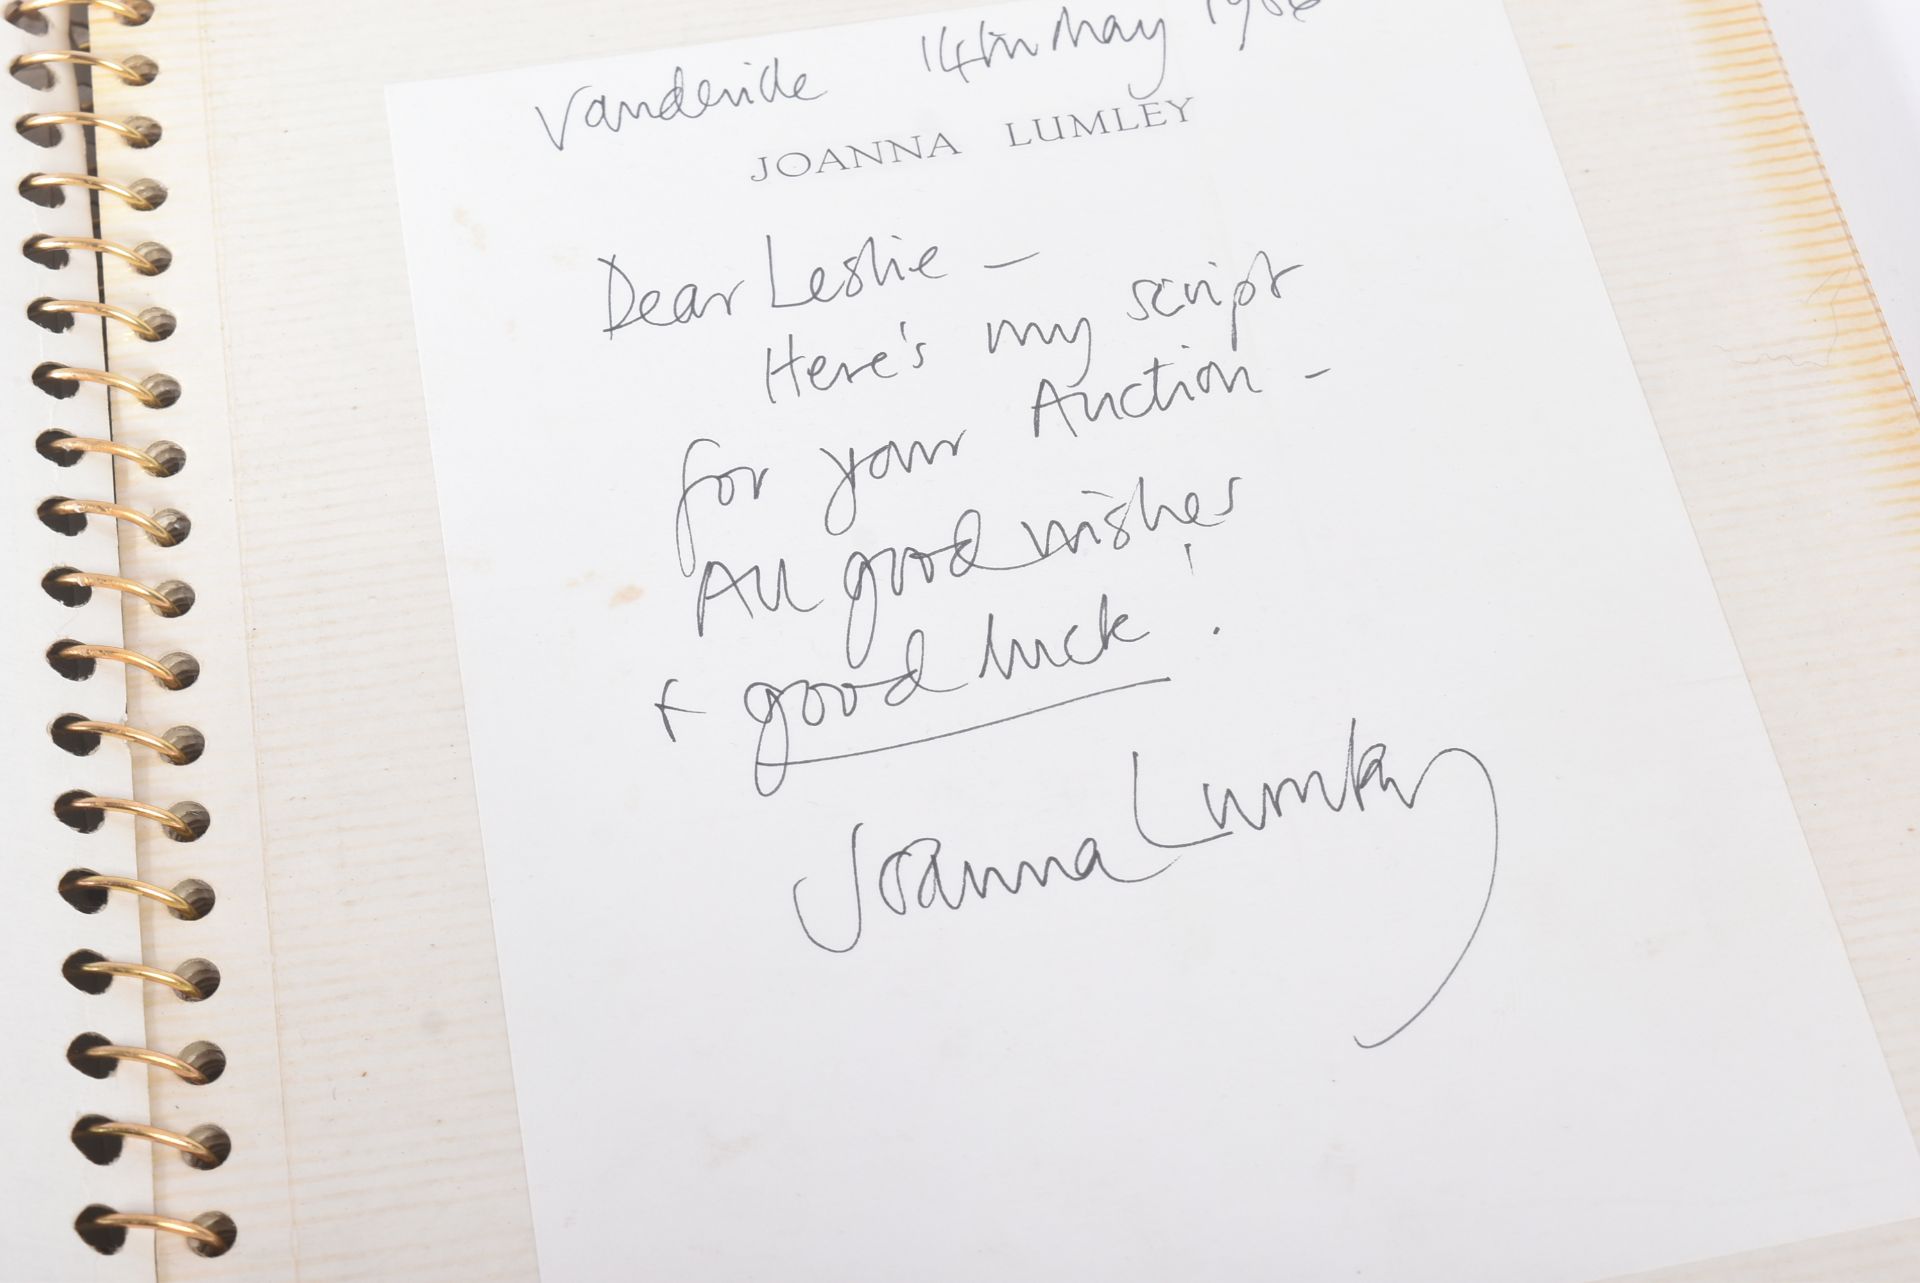 Vaudeville 14th May 1986
JOANNA LUMLEY
Dear Leslie –
Here's my script
for your Auction –
All good wishes
+ good luck!
Joanna Lumley